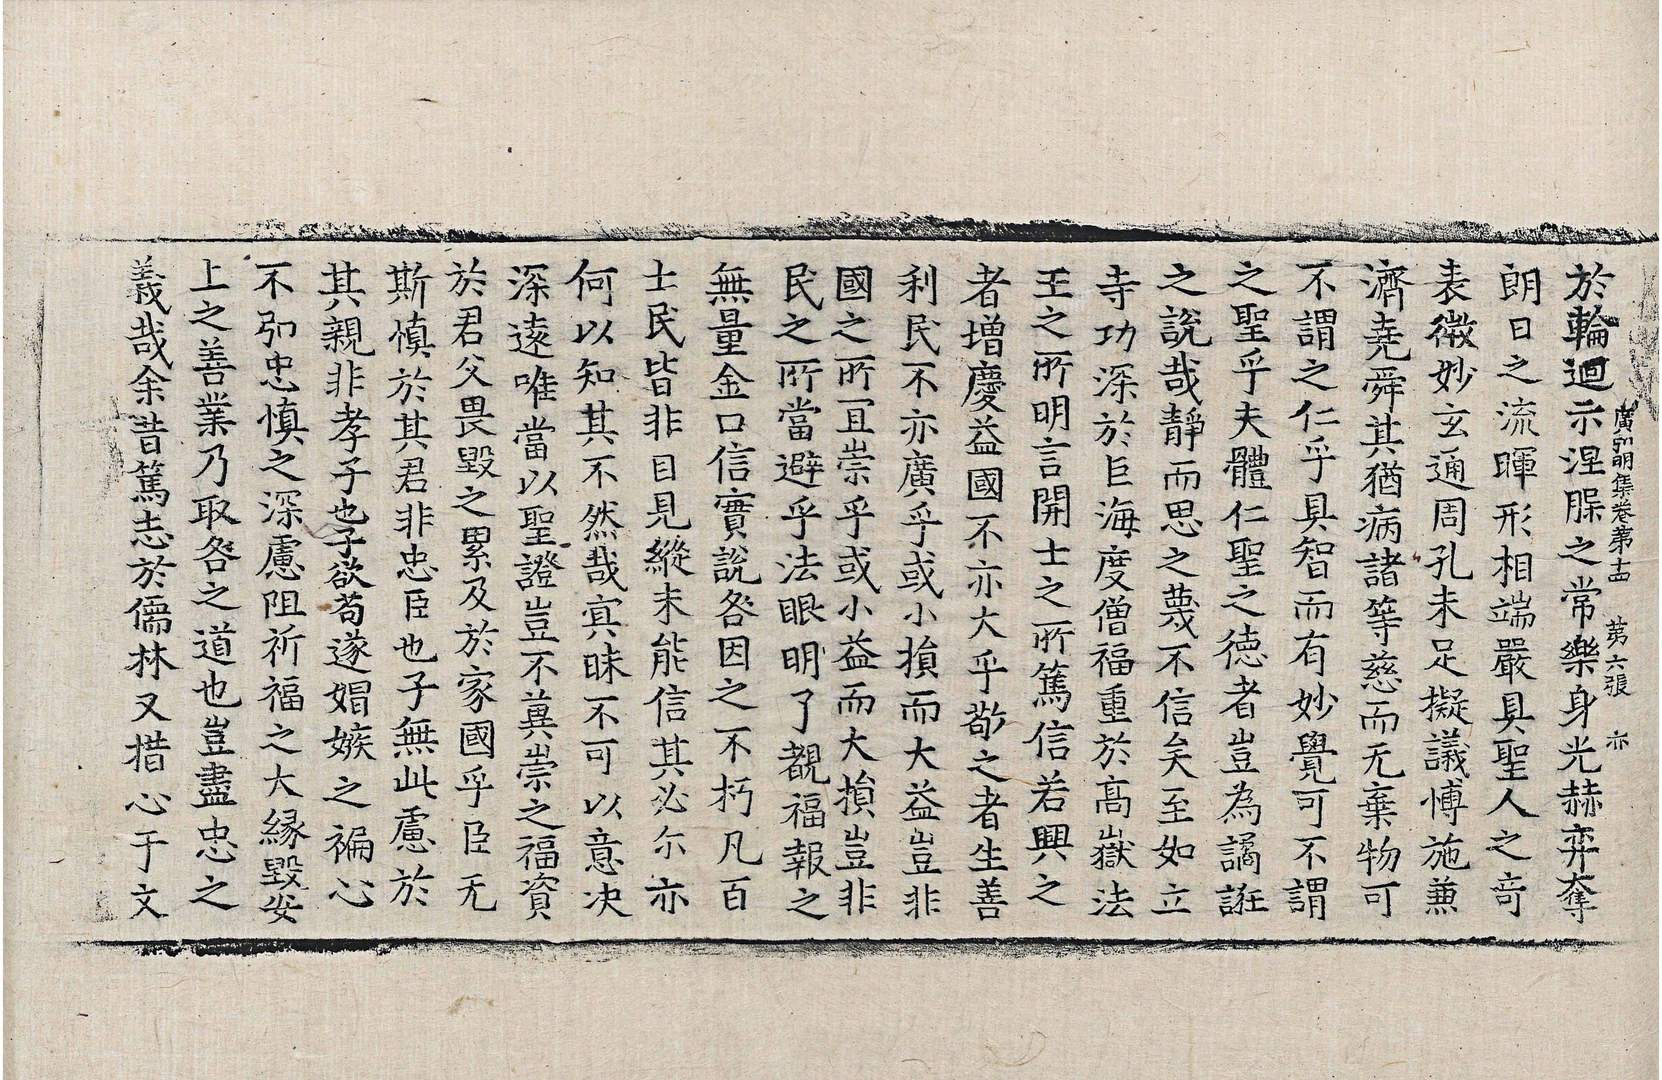 廣弘明集卷第十四 第六張 亦
於輪迴示涅槃之常樂身光赫弈奪
朗日之流暉形相端嚴具聖人之奇
表微妙玄通周孔未足擬議博施兼
濟堯舜其猶病諸等慈而无棄物可
不謂之仁乎具智而有妙覺可不謂
之聖乎夫體仁聖之德者豈為譎誑
之說哉靜而思之蔑不信矣至如立
寺功深於巨海度僧福重於高嶽法
王之所明言開士之所篤信若興之
者增慶益國不亦大乎敬之者生善
利民不亦廣乎或小損而大益豈非
國之所宜崇乎或小益而大損豈非
民之所當避乎法眼明了覩福報之
無量金口信實說咎因之不朽凡百
士民皆非目見縱未能信其必尔亦
何以知其不然哉冥昧不可以意决
深遠唯當以聖證豈不冀崇之福資
於君父畏毀之累及於家國乎臣无
斯慎於其君非忠臣也子無此慮於
其親非孝子也子欲苟遂媢嫉之褊心
不弘忠慎之深慮阻祈福之大緣毀安
上之善業乃取咎之道也豈盡忠之
義哉余昔篤志於儒林又措心于文